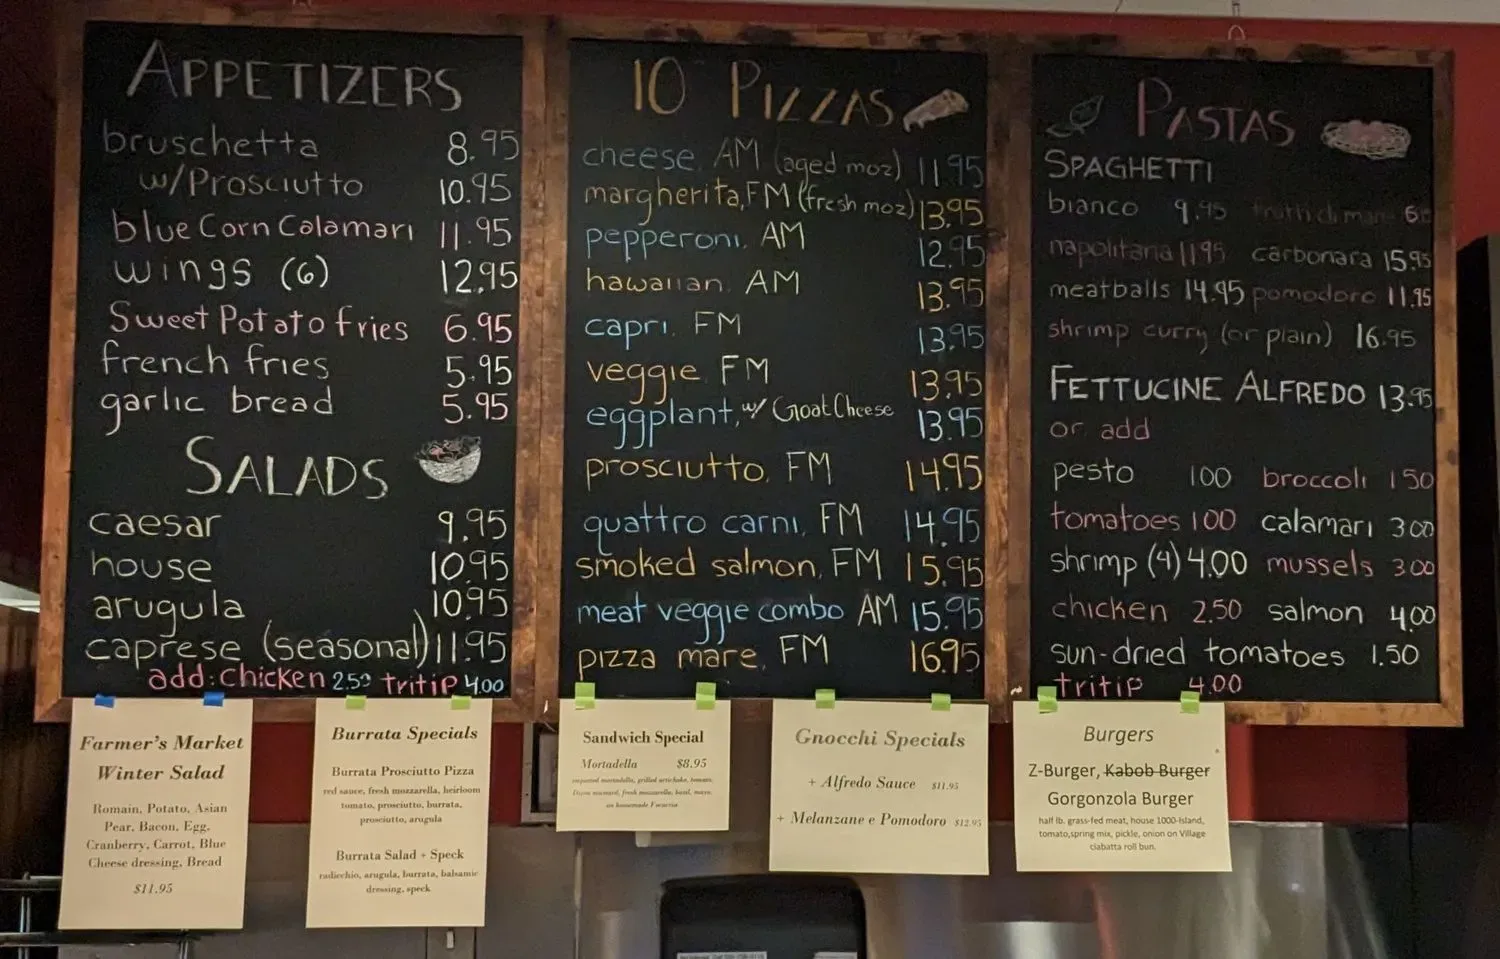 APPETIZERS
bruschetta 8.95
w/Prosciutto 10.95
blue Corn Calamari 11.95
wings (6) 12.95
Sweet Potato fries 6.95
french fries 5.95
garlic bread 5.95
SALADS
caesar 9.95
house 10.95
arugula 10.95
caprese (seasonal) 11.95
add: chicken 2.50 tritip 4.00
10" PIZZAS
cheese, AM (aged moz) 11.95
margherita, FM (fresh moz) 13.95
pepperoni, AM 12.95
hawaiian, AM 13.95
capri, FM 13.95
veggie FM 13.95
eggplant, w/ Goat Cheese 13.95
prosciutto, FM 14.95
quattro carni, FM 14.95
smoked salmon, FM 15.95
meat veggie combo AM 15.95
pizza mare, FM 16.95
PASTAS
SPAGHETTI
bianco 9.95 frutti di mare
napolitana 11.95 carbonara 15.95
meatballs 14.95 pomodoro 11.95
shrimp curry (or plain) 16.95
FETTUCINE ALFREDO 13.95
or add
pesto 1.00 broccoli 1.50
tomatoes 1.00 calamari 3.00
shrimp (4) 4.00 mussels 3.00
chicken 2.50 salmon 4.00
sun-dried tomatoes 1.50
tritip 4.00
Farmer's Market
Winter Salad
Romain, Potato, Asian
Pear, Bacon, Egg,
Cranberry, Carrot, Blue
Cheese dressing, Bread
$11.95
Burrata Specials
Burrata Prosciutto Pizza
red sauce, fresh mozzarella, heirloom
tomato, prosciutto, burrata,
prosciutto, arugula
Burrata Salad + Speck
radicchio, arugula, burrata, balsamic
dressing, speck
Sandwich Special
Mortadella $8.95
imported mortadella, grilled artichoke, tomato,
Dijon mustard, fresh mozzarella, basil, mayo,
on homemade Focaccia
Gnocchi Specials
+ Alfredo Sauce $11.95
+ Melanzane e Pomodoro $12.95
Burgers
Z-Burger, Kabob Burger
Gorgonzola Burger
half lb. grass-fed meat, house 1000-Island,
tomato,spring mix, pickle, onion on Village
ciabatta roll bun.